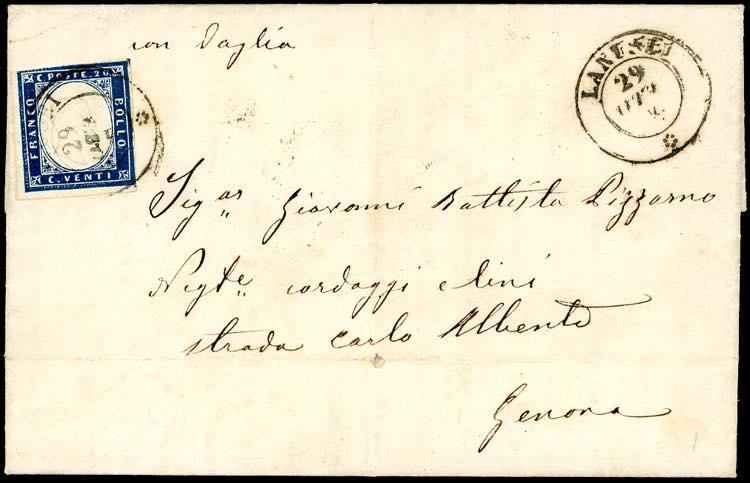 con Vaglia
C. POSTE. 20
FRANCO
BOLLO
C. VENTI
29
LANUSEI
29
OTT
Sig.or Giovanni Battista Pizzorno
Negte. cordaggi e lini
strada Carlo Alberto
Genova